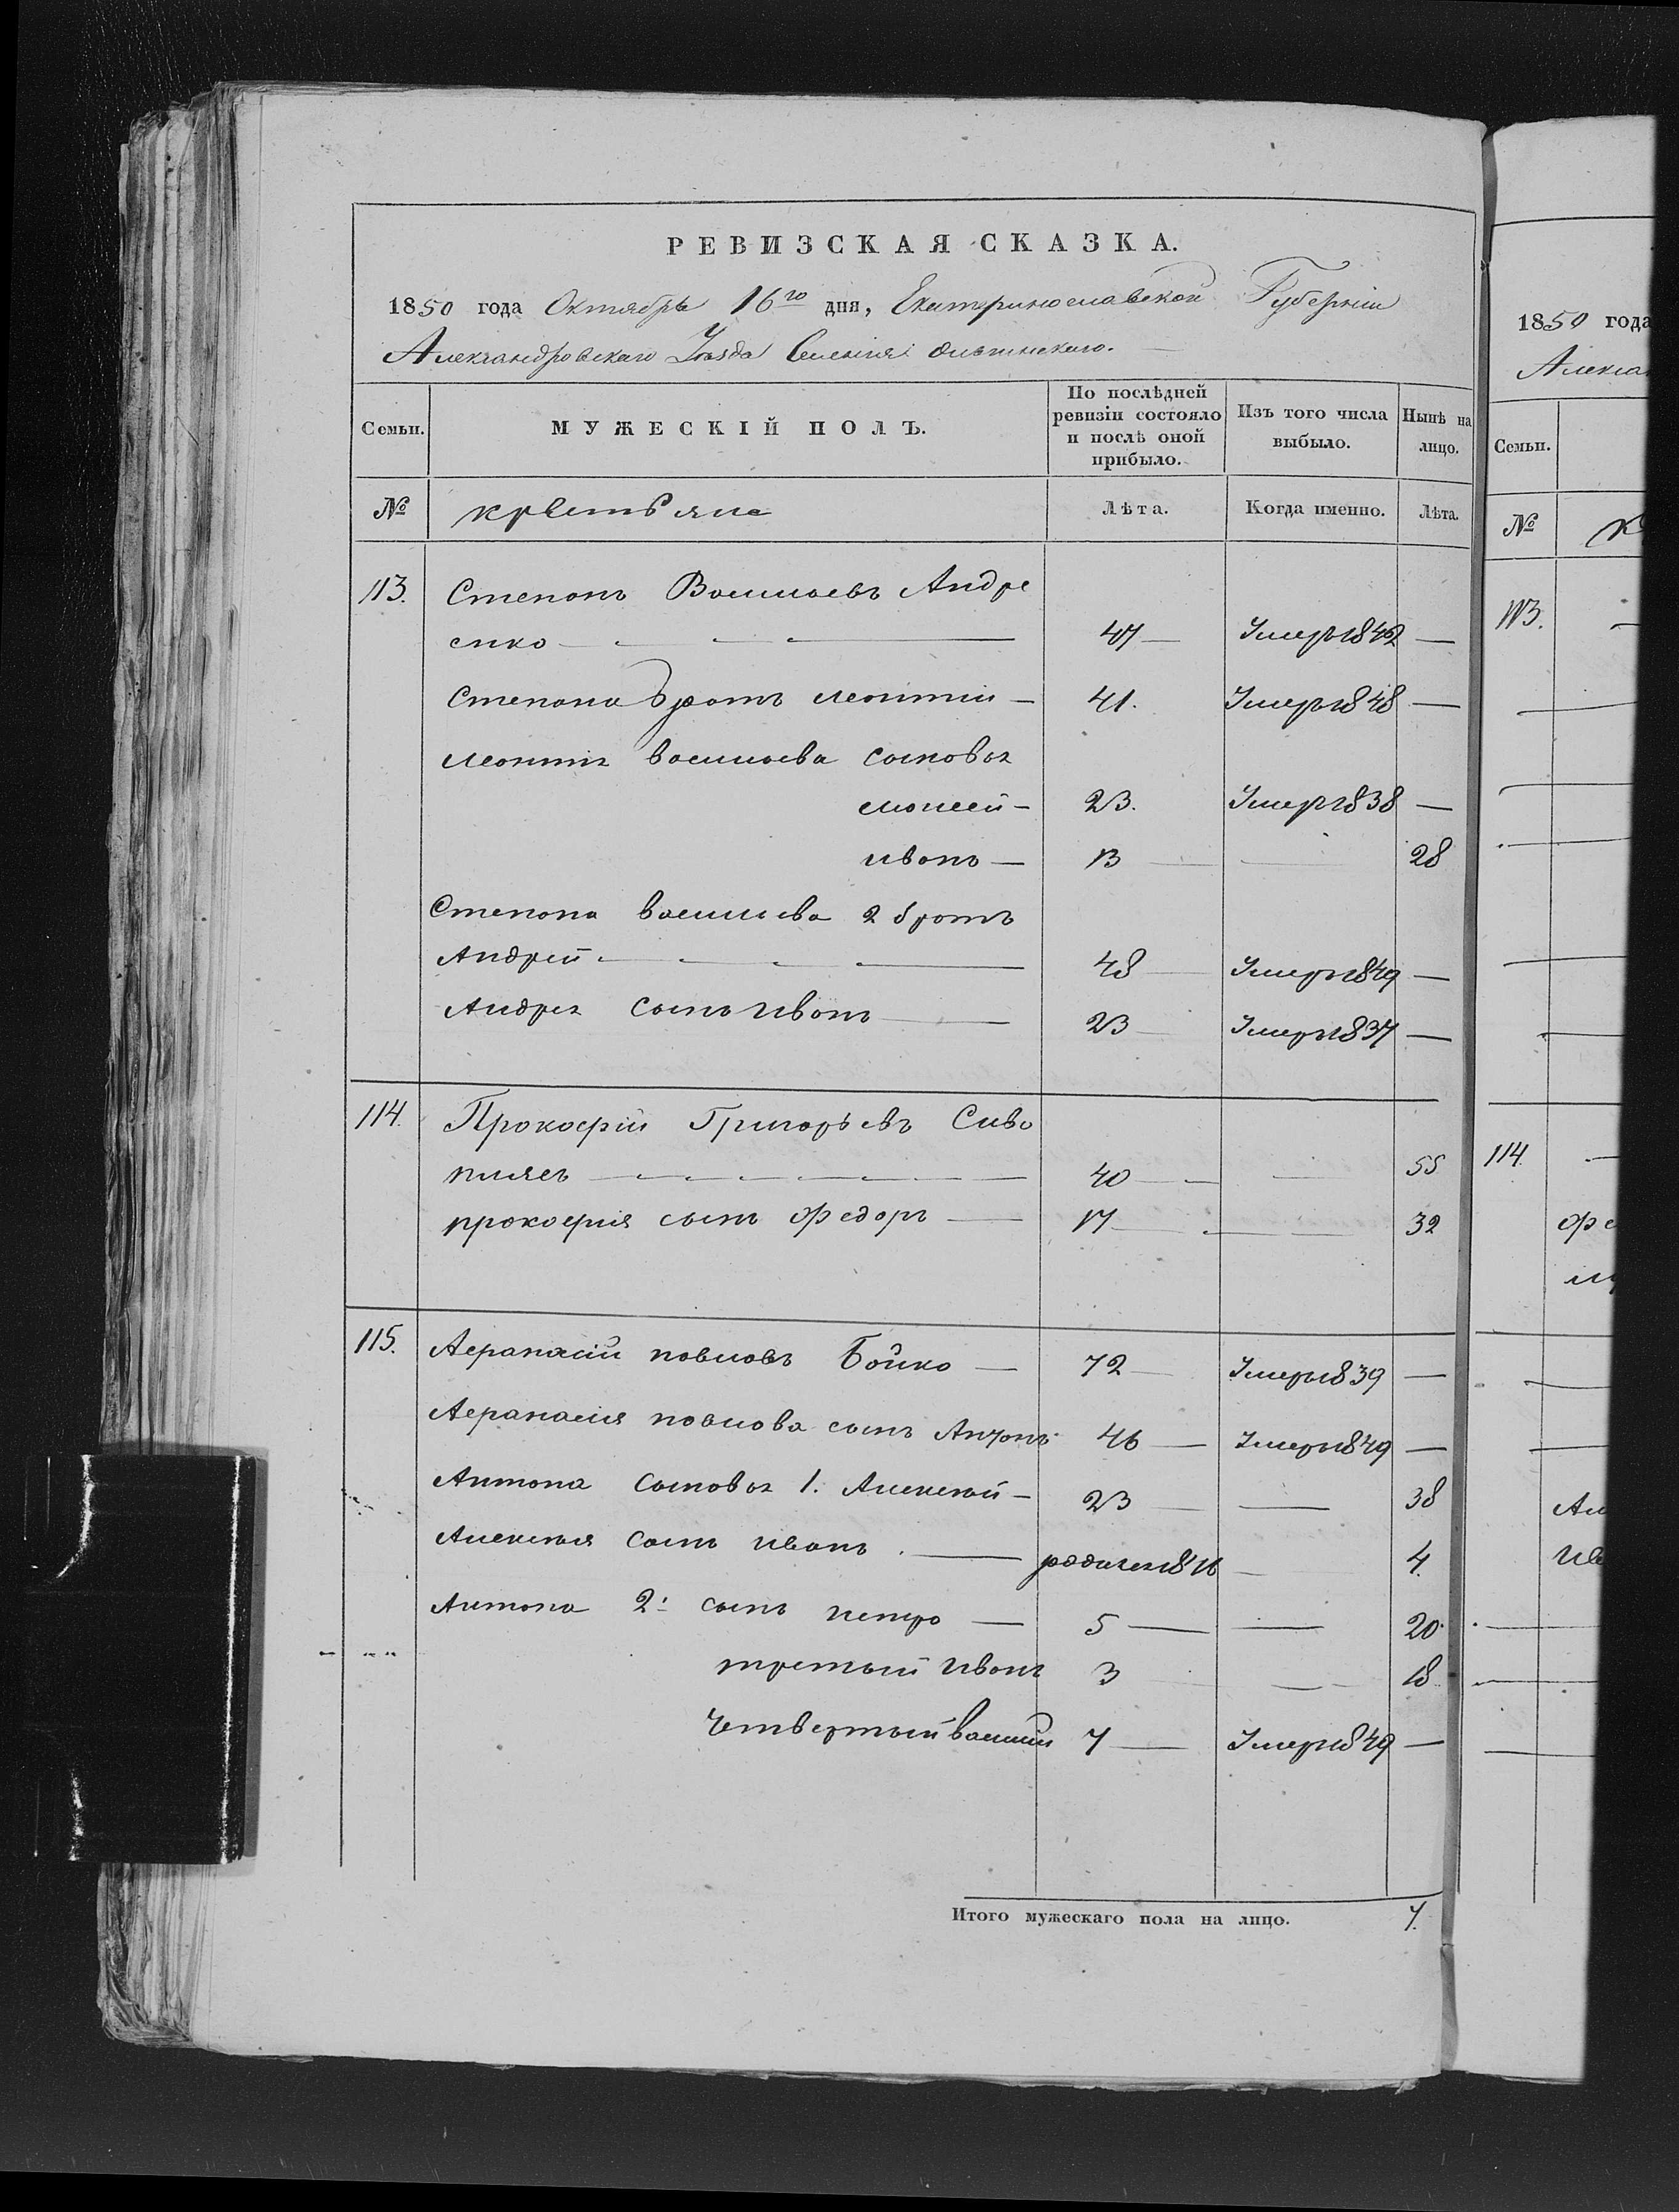 РЕВИЗСКАЯ СКАЗКА.
1850 года Октября 16го дня, Екатеринославской Губерніи
Александровскаго Уѣзда Селенія
Семьи. МУЖЕСКІЙ ПОЛЪ. По послѣдней ревизіи состояло и послѣ оной прибыло. Изъ того числа выбыло. Нынѣ на лицо.
№ крестьяне Лѣта. Когда именно. Лѣта.
113. Степанъ Васильевъ Андре
енко — 47 — Умеръ 1842 —
Степана братъ леонтій — 41. Умеръ 1848 —
леонтія васильева сыновья
моисей — 23. Умеръ 1838 —
иванъ — 13 — 28
Степана васильева 2 братъ
Андрей — 48 Умеръ 1849 —
Андрея сынъ иванъ — 23 Умеръ 1837 —
114. Прокофій Григорьевъ Сиво
плясъ — 40 — 55
прокофія сынъ федоръ — 17 — 32
115. Афанасій павловъ Бойко — 72 — Умеръ 1839 —
Афанасія павлова сынъ Антонъ 46 — Умеръ 1849 —
Антона сыновья 1. Алексѣй — 23 — 38
Алексѣя сынъ иванъ. — родился 1846 — 4.
Антона 2: сынъ петро — 5 — 20
третый иванъ 3 — 18
Четвертый василій 7 — Умеръ 1849 —
Итого мужескаго пола на лицо. 7.
1850 года
Семьи.
№
113.
114.